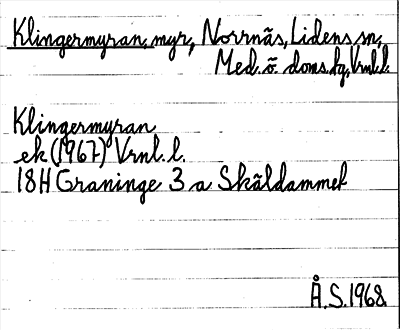 Klingermyran, myr, Norrnäs, Lidens sn,
Med. ö. doms.dg, Vrnl.l.
Klingermyran
ek (1967) Vrnl. l.
18H Graninge 3 a Skäldammet
Å.S. 1968